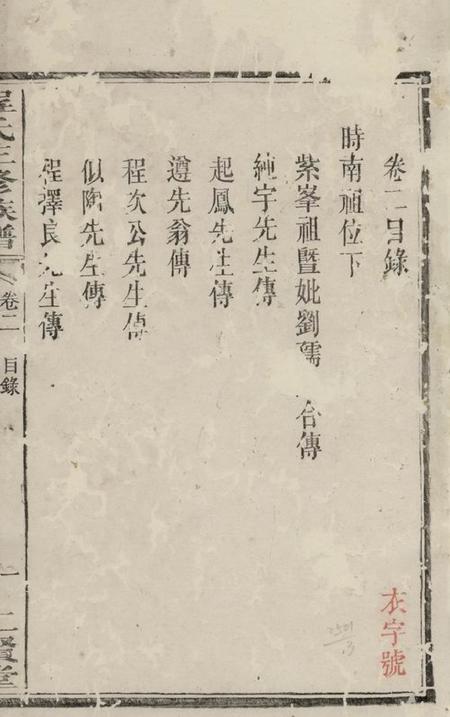 卷二目錄
時南祖位下
紫峯祖暨妣劉孺 合傳
純宇先生傳
起鳳先生傳
遵先翁傳
程次公先生傳
似陶先生傳
程澤良先生傳
程氏三修族譜
卷二
目錄
一
二賢堂
衣字號
2501
13